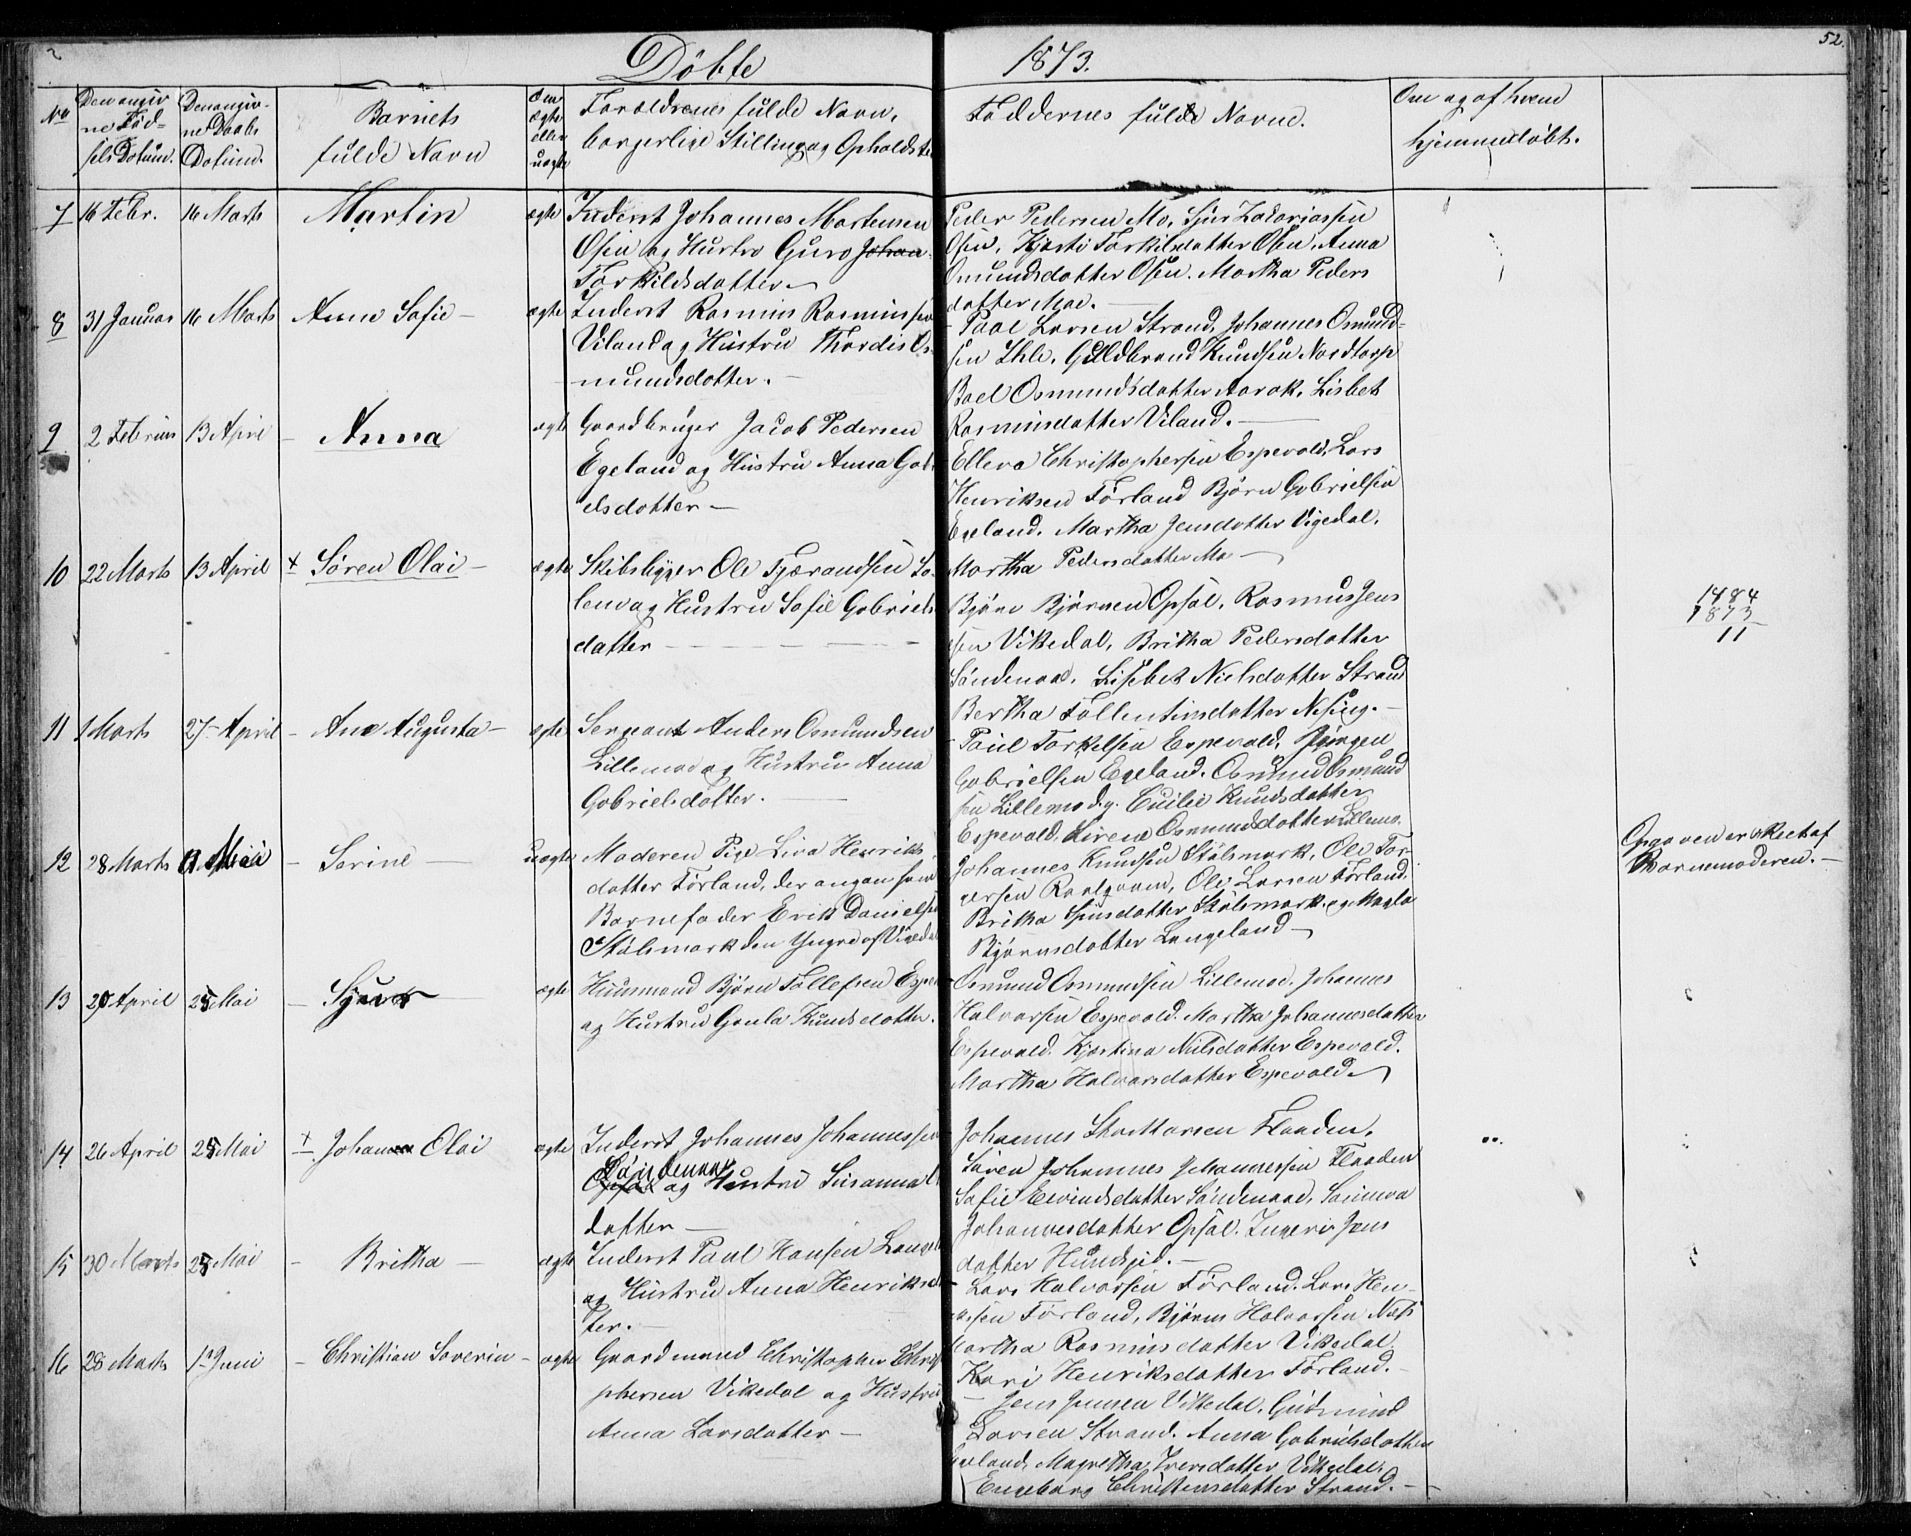 Døbte 1873. 52.
No
Den angiv
ne Fød-
sels Datum.
Den angiv-
ne Daabs
Datum.
Barnets
fulde Navn
Om
ægte
eller
uægte
Forældrenes fulde Navn,
borgerlige Stilling og Opholdste
Faddernes fulde Navne.
Om og af hvem
hjemmedøbt.
7 16 Febr. 16 Marts Martin ægte Inderst Johannes Mortensen
Osen og Hustro Guro Johan
Torkildsdatter
Peder Pedersen Mo, Sjur Zakariassen
Osen, Kjersti Torkilsdatter Osen, Anna
Omundsdatter Osen. Martha Peders
datter Moe.
8 31 Januar 16 Marts Anne Sofie ægte Inderst Rasmus Rasmussen
Viland og Hustru Thordis Os
mundsdatter.
Paal Larsen Strand, Johannes Osmund-
sen Ihle. Guldbrand Knudsen Nordtorp
Boel Osmundsdatter Aarak, Lisbet
Rasmusdatter Viland.
9 2 Februar 13 April Anna ægte Gaardbruger Jacob Pedersen
Egeland og Hustru Anna Gab
elsdatter
Ellera Christophersen Espevold, Lars
Henriksen Førland Bjørn Gabrielsen
Egeland. Martha Jensdatter Vigedal,
Martha Pedersdatter Mo
10 22 Marts 13 April + Søren Olai ægte Skibsbygger Ole Tjerandsen Sa-
lem og Hustru Sofie Gabriels
datter
Bjørn Bjørnsen Opsal, Rasmus Jens
sen Vikedal, Britha Pedersdatter
Søndenaa. Lisebet Nielsdatter Strand
Bertha Follentinsdatter Nesing.
1484
1873
11
11 1 Marts 27 April Ane Augusta ægte Sergeant Anders Osmundsen
Lillemo og Hustru Anna
Gabrielsdatter.
Paul Torkelsen Espevold, Jørgen
Gabrielsen Egeland. Osmund Osmund
sen Lillemo d.y. Cecilie Knudsdatter
Espevold. Sirene Osmundsdatter Lillemo.
12 28 Marts Mai Serine uægte Moderen Pige Liva Henriks
datter Førland, der angav som
Barnefader Erik Danielsen
Stølsmark den Yngre af Vigedal
Johannes Knudsen Stølsmark, Ole Tor-
gersen Raalgaven, Ole Larsen Førland
Britha Sjursdatter Stølsmark og Magla
Bjørnsdatter Langeland
Opgaven er skeet af
Barnemoderen.
13 20 April 25 Mai Sjur ægte Huusmand Bjørn Tollefsen Espe
og Hustru Gunla Knudsdatter.
Osmund Osmundsen Lillemoe, Johannes
Halvorsen Espevold. Martha Johannesdatter
Espevold. Kjerstina Nielsdatter Espevold.
Martha Halvorsdatter Espevold
14 26 April 25 Mai + Johan Olai ægte Inderst Johannes Johannessen
Søndenaa
og Hustru Susanna
datter
Johannes Flaaden,
Søren Johannes Johannessen Flaaden
Sofie Eivindsdatter Søndenaa, Sarinna
Johannesdatter Opsal. Ingeri Jens
datter Hundsjed.
15 30 Marts 25 Mai Britha ægte Inderst Paul Hansen Lange
og Hustru Anna Henriksda
ter.
Lars Halvorsen Førland. Lars Hen-
riksen Førland, Bjørn Halvorsen Næs
Martha Rasmusdatter Vikedal
Kari Henriksdatter Førland.
16 28 Marts 1 Juni Christian Severin ægte Gaardmand Christopher Chris
phersen Vikedal og Hustru
Anna Larsdatter
Jens Jensen Vikedal, Gudmund
Larsen Strand. Anna Gabrielsdatter
Egeland, Magretha Iversdatter Vikedal.
Engeborg Christensdatter Strand.